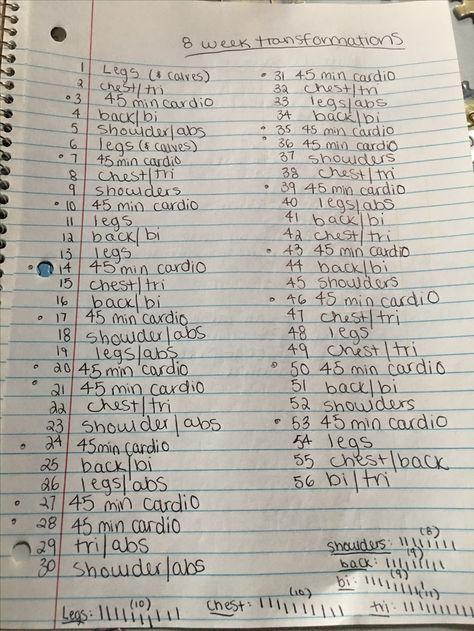 8 week transformations
1 Legs (& calves)
2 chest/tri
• 3 45 min cardio
4 back/bi
5 shoulder/abs
6 legs (& calves)
• 7 45 min cardio
8 chest/tri
9 shoulders
• 10 45 min cardio
11 legs
12 back/bi
13 legs
• 14 45 min cardio
15 chest/tri
16 back/bi
• 17 45 min cardio
18 shoulder/abs
19 legs/abs
• 20 45 min cardio
• 21 45 min cardio
22 chest/tri
23 shoulder/abs
• 24 45min cardio
25 back/bi
26 legs/abs
• 27 45 min cardio
• 28 45 min cardio
29 tri/abs
30 shoulder/abs
• 31 45 min cardio
32 chest/tri
33 legs/abs
34 back/bi
• 35 45 min cardio
• 36 45 min cardio
37 shoulders
38 chest/tri
• 39 45 min cardio
40 legs/abs
41 back/bi
42 chest/tri
• 43 45 min cardio
44 back/bi
45 shoulders
• 46 45 min cardio
47 chest/tri
48 legs
49 chest/tri
• 50 45 min cardio
51 back/bi
52 shoulders
• 53 45 min cardio
54 legs
55 chest/back
56 bi/tri
shoulders: (8)
back: (9)
bi: (9)
Legs: (10) chest: (10) tri: (11)